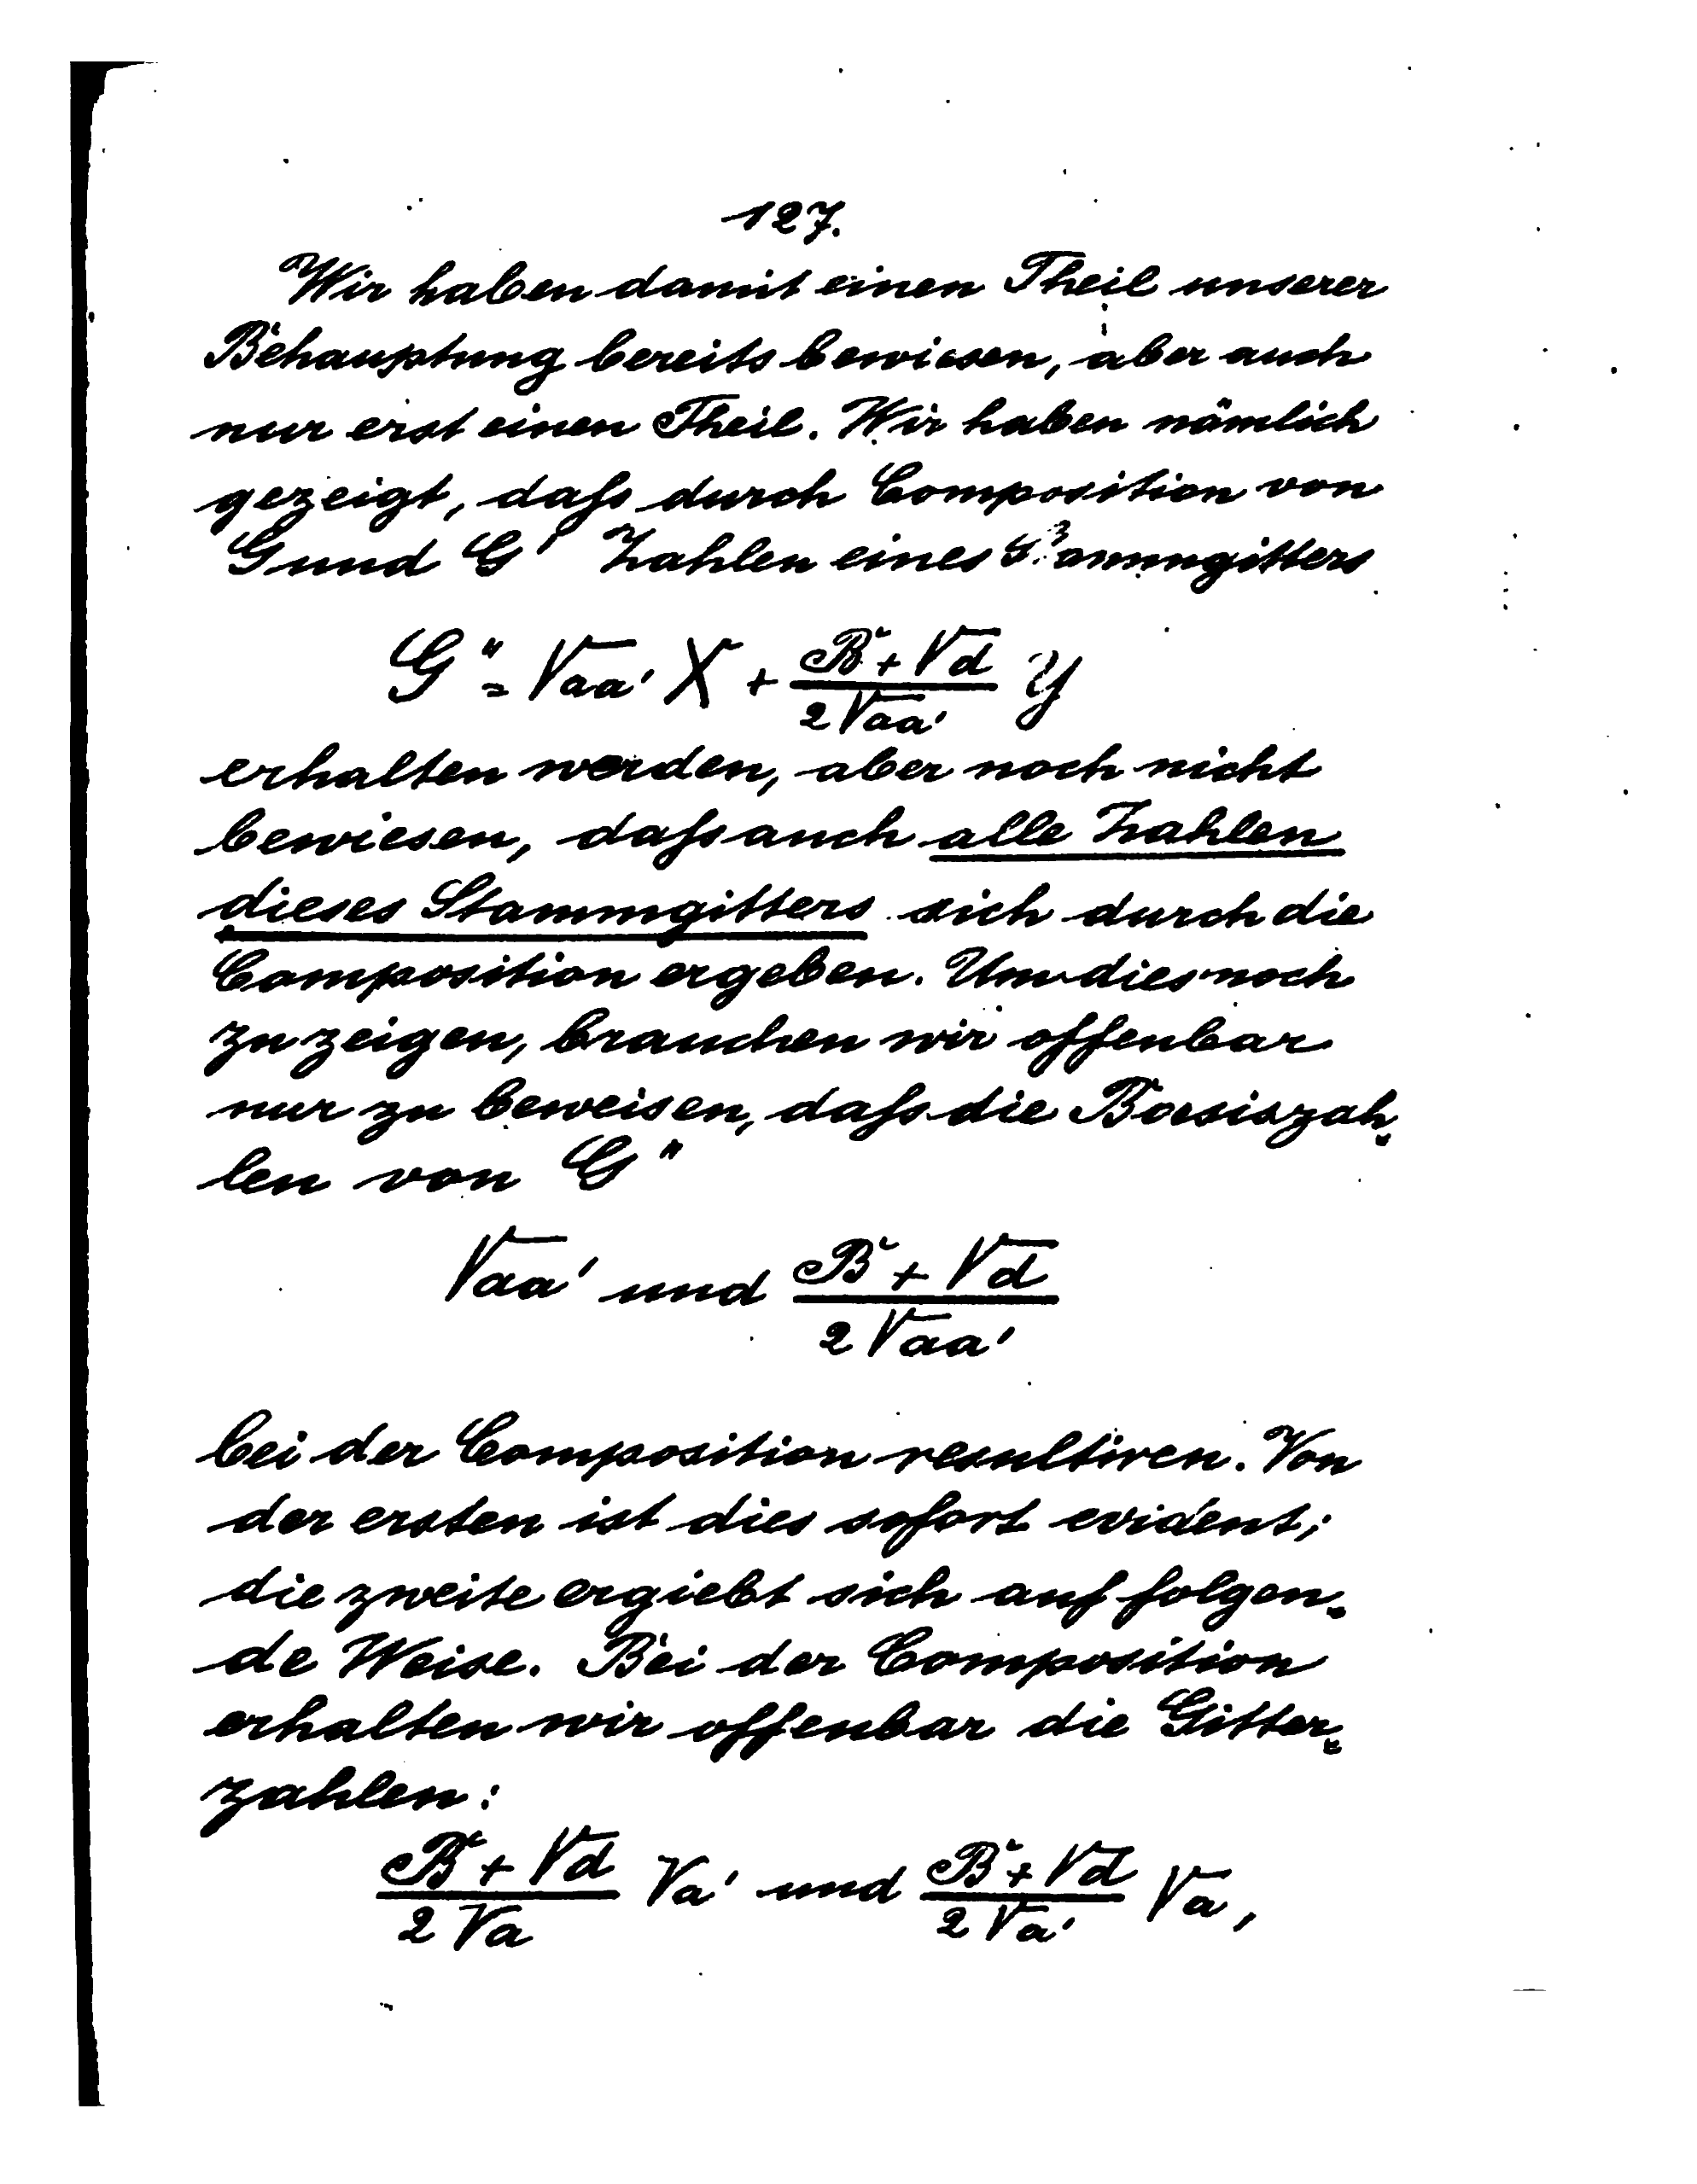 127.
Wir haben damit einen Theil unserer
Behauptung bereits bewiesen, aber auch
nur erst einen Theil. Wir haben nämlich
gezeigt, daſs durch Composition von
G und G' Zahlen eines Stammgitters
G" = √aa' X + (B + √d)/(2√aa') Y
erhalten werden, aber noch nicht
bewiesen, daſs auch alle Zahlen
dieses Stammgitters sich durch die
Composition ergeben. Um dies noch
zu zeigen, brauchen wir offenbar
nur zu beweisen, daſs die Basiszah-
len von G"
√aa' und (B + √d)/(2√aa')
bei der Composition resultiren. Von
der ersten ist dies sofort evident;
die zweite ergiebt sich auf folgen-
de Weise. Bei der Composition
erhalten wir offenbar die Gitter-
zahlen:
(B + √d)/(2√a) √a' und (B + √d)/(2√a') √a,